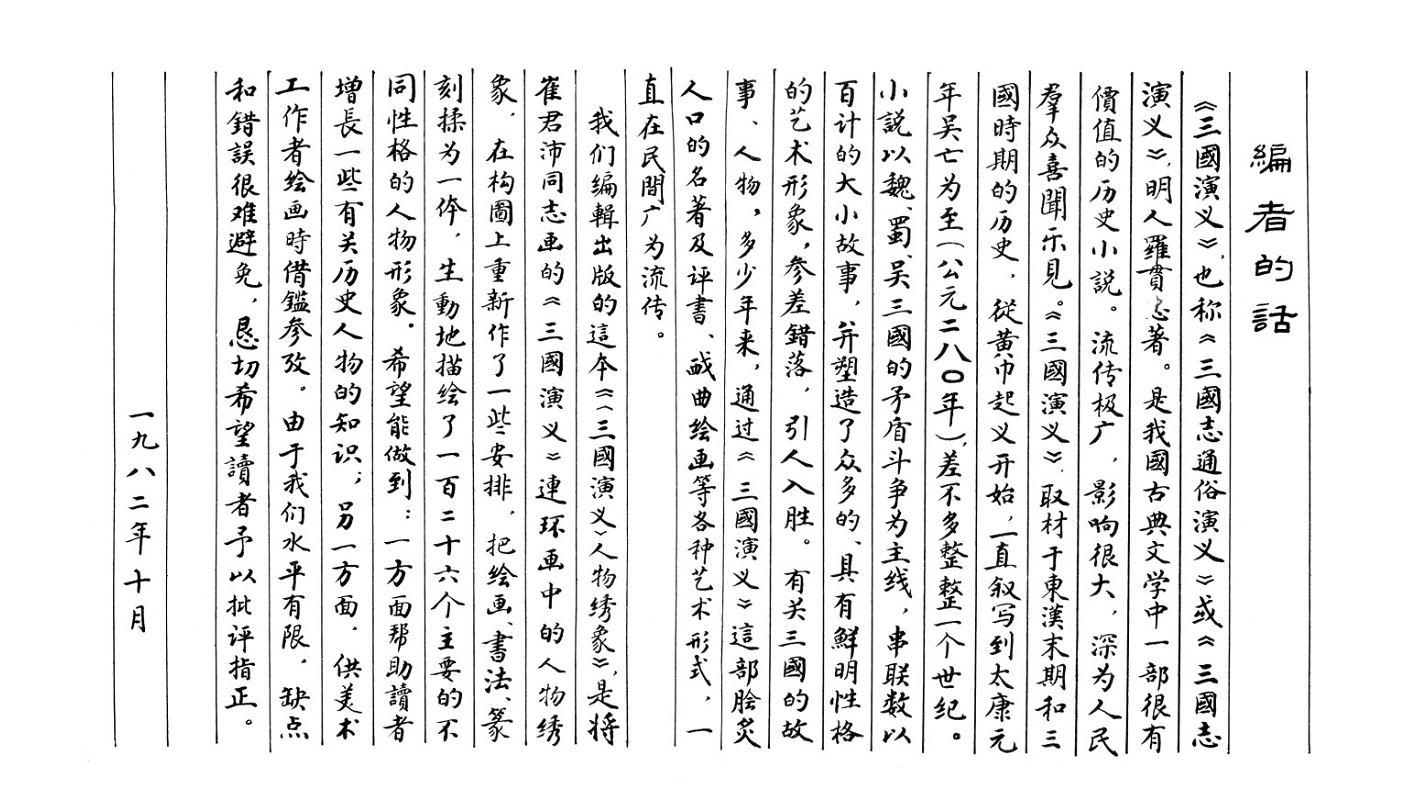 編者的話
《三國演义》,也称《三國志通俗演义》或《三國志
演义》,明人羅貫忠著。是我國古典文学中一部很有
價值的历史小説。流传极广,影响很大,深为人民
羣众喜聞乐見。《三國演义》,取材于東漢末期和三
國時期的历史,從黄巾起义开始,一直叙写到太康元
年吴亡为至(公元二八〇年),差不多整整一个世纪。
小説以魏、蜀、吴三國的矛盾斗争为主线,串联数以
百计的大小故事,并塑造了众多的、具有鮮明性格
的艺术形象,参差錯落,引人入胜。有关三國的故
事、人物,多少年来,通过《三國演义》這部脍炙
人口的名著及评書、戏曲绘画等各种艺术形式,一
直在民間广为流传。
我们编輯出版的這本《〈三國演义〉人物绣象》,是将
崔君沛同志画的《三國演义》連环画中的人物绣
象,在构圖上重新作了一些安排,把绘画、書法、篆
刻揉为一体,生動地描绘了一百二十六个主要的不
同性格的人物形象。希望能做到:一方面帮助讀者
增長一些有关历史人物的知识;另一方面,供美术
工作者绘画時借鑑参攷。由于我们水平有限,缺点
和錯誤很难避免,恳切希望讀者予以批评指正。
一九八二年十月